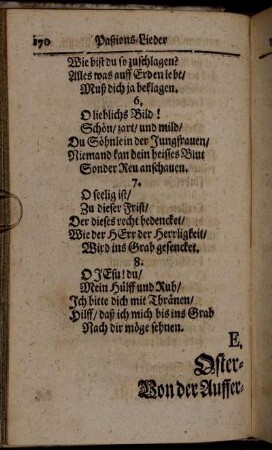 170 Paßions-Lieder
Wie bist du so zuschlagen?
Alles was auff Erden lebt/
Muß dich ja beklagen.
6.
O lieblichs Bild!
Schön/ zart/ und mild/
Du Söhnlein der Jungfrauen/
Niemand kan dein heisses Blut
Sonder Reu anschauen.
7.
O seelig ist/
Zu dieser Frist/
Der dieses recht bedencket/
Wie der HErr der Herrligkeit/
Wird ins Grab gesencket.
8.
O JEsu! du/
Mein Hülff und Ruh/
Ich bitte dich mit Thränen/
Hilff/ daß ich mich bis ins Grab
Nach dir möge sehnen.
E.
Oster-
Von der Auffer-